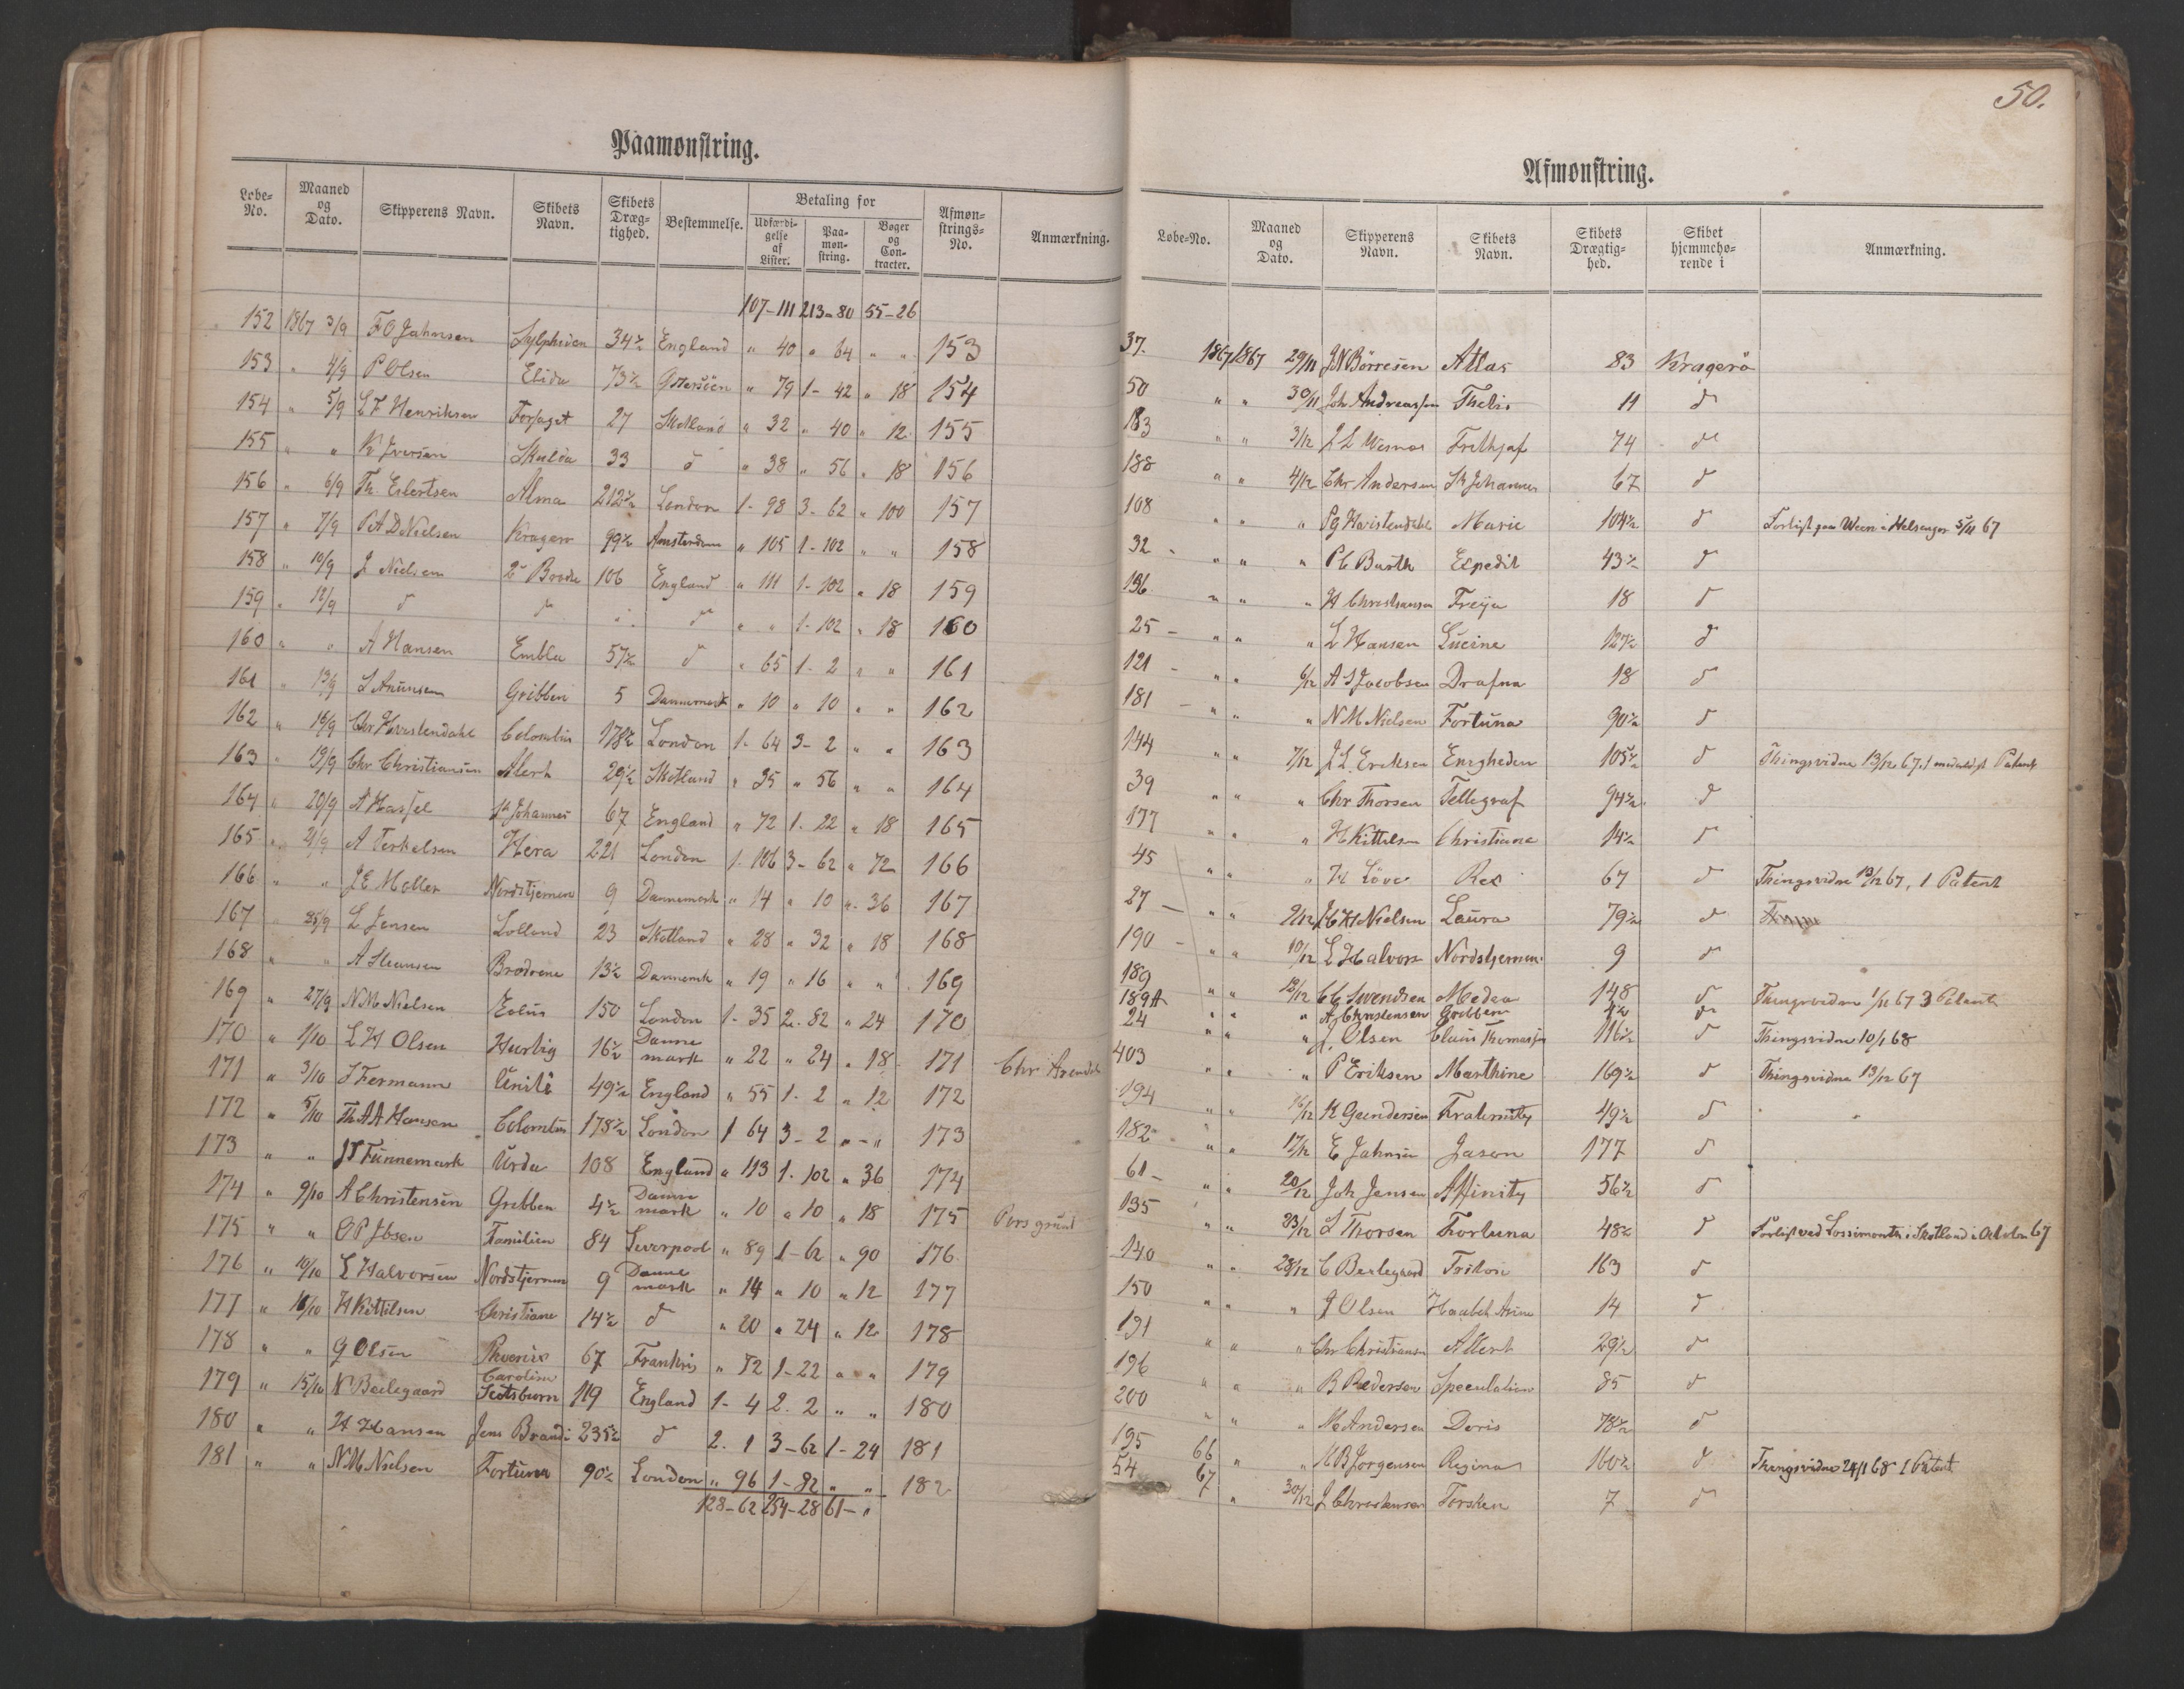 50.
Paamønstring.
Løbe-No. | Maaned og Dato. | Skipperens Navn. | Skibets Navn. | Skibets Dræg-tighed. | Bestemmelse. | Betaling for | Udfærdi-gelse af Lister. | Paa-møn-string. | Bøger og Con-tracter. | Afmøn-strings-No. | Anmærkning.
107-111 213-80 55-26
152 1867 3/9 F O Jahnsen Sylphiden 34½ England " 40 " 64 " " 153
153 " 4/9 P Olsen Elida 73½ Østersöen " 79 1-42 " 18 154
154 " 5/9 L F Henriksen Forsøget 27 Skotland " 32 " 40 " 12 155
155 " " K Iversen Skulda 33 d " 38 " 56 " 18 156
156 " 6/9 Th. Eilertsen Alma 212½ London 1-98 3-62 " 100 157
157 " 7/9 P A D Nielsen Kragerø 99½ Amsterdam " 105 1-102 " " 158
158 " 10/9 J Nielsen 2 Brödre 106 England " 111 1-102 " 18 159
159 " 12/9 d d " d " " 1-102 " 18 160
160 " " A Hansen Embla 57½ d " 65 1-2 " " 161
161 " 13/9 S Anunsen Gribben 5 Dannemark " 10 " 10 " " 162
162 " 16/9 Chr Hvistendahl Colombus 178½ London 1-64 3-2 " " 163
163 " 19/9 Chr Christiansen Alert 29½ Skotland " 35 " 56 " " 164
164 " 20/9 A Hassel St Johannes 67 England " 72 1-22 " 18 165
165 " 21/9 A Terkelsen Hera 221 London 1-106 3-62 " 72 166
166 " " J E Møller Nordstjernen 9 Dannemark " 14 " 10 " 36 167
167 " 25/9 L Jensen Lolland 23 Skotland " 28 " 32 " 18 168
168 " " A Steansen Brødrene 13½ Dannemk " 19 " 16 " " 169
169 " 27/9 N M Nielsen Eolus 150 London 1-35 2-82 " 24 170
170 " 1/10 L H Olsen Hurtig 16½ Danne mark " 22 " 24 " 18 171 Chr Arendal
171 " 3/10 S Fermann Unité 49½ England " 55 1-2 " 12 172
172 " 5/10 Th A A Hansen Colombus 178½ London 1 64 3-2 "-" 173
173 " " J T Funnemark Urda 108 England " 113 1-102 " 36 174
174 " 9/10 A Christensen Gribben 4½ Danne mark " 10 " 10 " 18 175 Porsgrund
175 " " O P Ibsen Familien 84 Liverpool " 89 1-62 " 90 176
176 " 10/10 L Halvorsen Nordstjernen 9 Danne mark " 14 " 10 " 12 177
177 " 11/10 H Kittilsen Christiane 14½ d " 20 " 24 " 12 178
178 " " G Olsen Phoenix 67 Frankrig " 72 1-22 " " 179
179 " 15/10 N Beilegaard Caroline Scotsburn 119 England 1-4 2.2 " " 180
180 " " H Hansen Jens Brandi 235½ d 2.1 3-62 1-24 181
181 " " N M Nielsen Fortuna 90½ London " 96 1-82 " " 182
128-62 254-28 61-"
Afmønstring.
Løbe-No. | Maaned og Dato. | Skipperens Navn. | Skibets Navn. | Skibets Drægtig-hed. | Skibet hjemmehø-rende i | Anmærkning.
37. 1867 1867 29/11 J N Börresen Atlas 83 Kragerö
50 " " 30/11 Joh Andreassen Thetis 11 d
183 " " 3/12 J L Wesnes Frithjof 74 d
188 " " 4/12 Chr Andersen St Johannes 67 d
108 " " " P G Hvistendahl Marie 104½ d Forlist paa Ween i Helsingør 5/11 67
32 " " " P C Barth Expedit 43½ d
136 " " " H Christiansen Freija 18 d
25 - " " " L Hansen Lucine 127½ d
121 - " " 6/12 A S Jacobsen Drafna 18 d
181 - " " " N M Nielsen Fortuna 90½ d
144 " " 7/12 J L Eriksen Enigheden 105½ d Thingsvidne 13/12 67. Patent
39 " " " Chr Thorsen Tellegraf 94½ d
177 " " " H Kittilsen Christiane 14½ d
45 " " " H Löve Rex 67 d Thingsvidne 13/12 67, 1 Patent
27 - " " 9/12 J C H Nielsen Laura 79½ d
190 - " " 10/12 L Halvors Nordstjernen 9 d
189 " " 13/12 C C Svendsen Medea 148 d Thingsvidne 1/12 67 3 Patent
189A " " " A Christensen Gribben 4½ d
24 " " " J. Olsen Claus Thomassen 116½ d Thingsvidne 10/1 68
403 " " " P Eriksen Marthine 169½ d Thingsvidne 13/12 67
194 " " 16/12 K Gundersen Fraternity 49½ d
182 " " 17/12 E Jahnsen Jason 177 d
61 - " " 20/12 Joh Jensen Affinity 56½ d
135 " " 23/12 S Thorsen Fortuna 48½ d Forlist ved Lossimouth i Skotland i October 67
140 " " 28/12 C Beilegaard Triton 163 d
150 " " " J Olsen Haabet Asine 14 d
191 " " " Chr Christiansen Allert 29½ d
196 " " " B Pedersen Speculation 85 d
200 " " " M Andersen Doris 78½ d
195 66 " " M B Jørgensen Regina 160½ d Thingsvidne 24/1 68 1 Patent
54 67 " 30/12 J Christensen Torsken 7 d